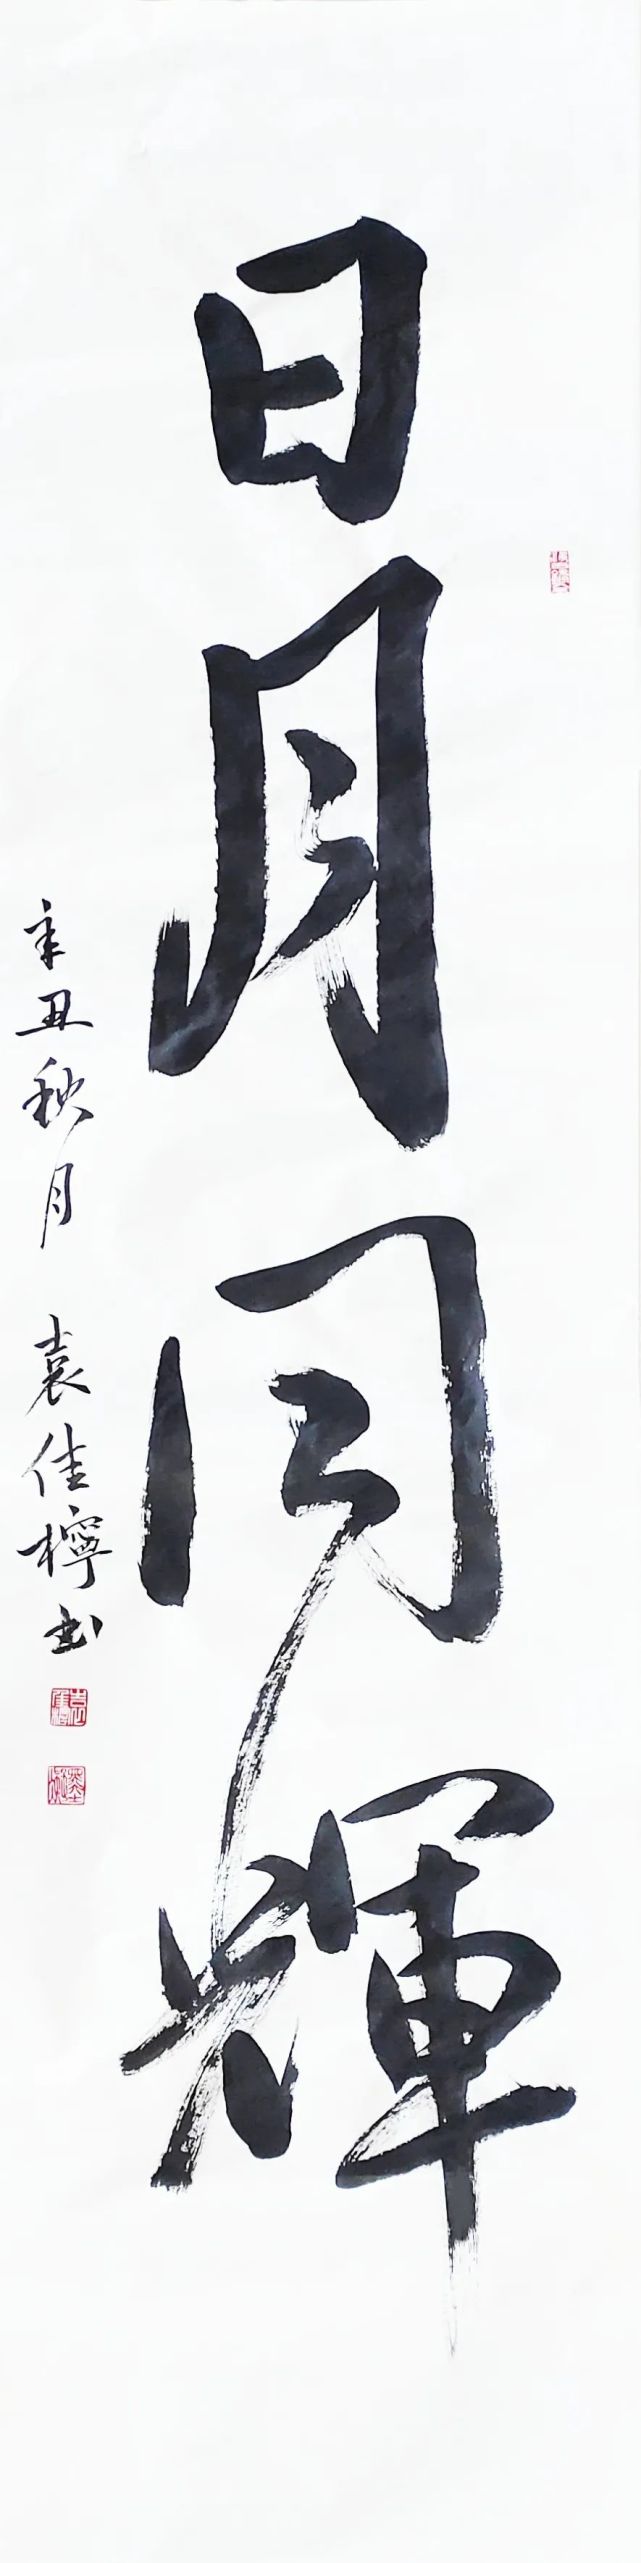 日月同輝
辛丑秋月 袁佳檸书